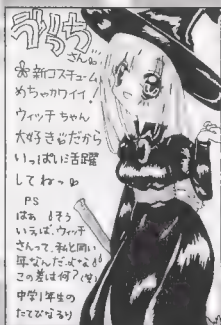 うぃっち
さん♡
新コスチューム
めちゃカワイイ!
ウィッチちゃん
大好きだから
いっぱい活躍
してねっ♡
PS
はぁ そう
いえば、ウィッチ
さんって、私と同い
年なんだよな
この差は何?(笑)
中学1年生の
たてびなるり